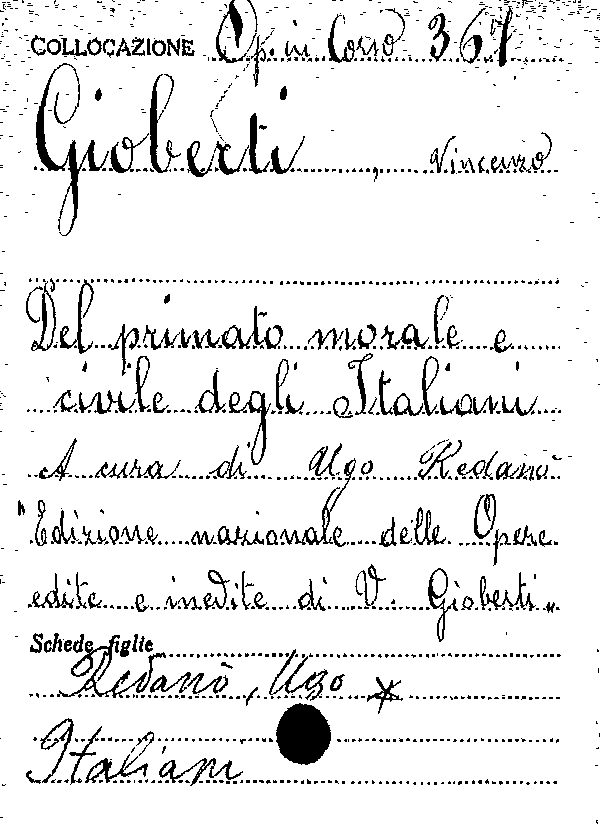 COLLOCAZIONE Op. in Corso 367
Gioberti, Vincenzo
Del primato morale e
civile degli Italiani
A cura di Ugo Redanò
"Edizione nazionale delle Opere
edite e inedite di V. Gioberti"
Schede figlie
Redanò, Ugo *
Italiani